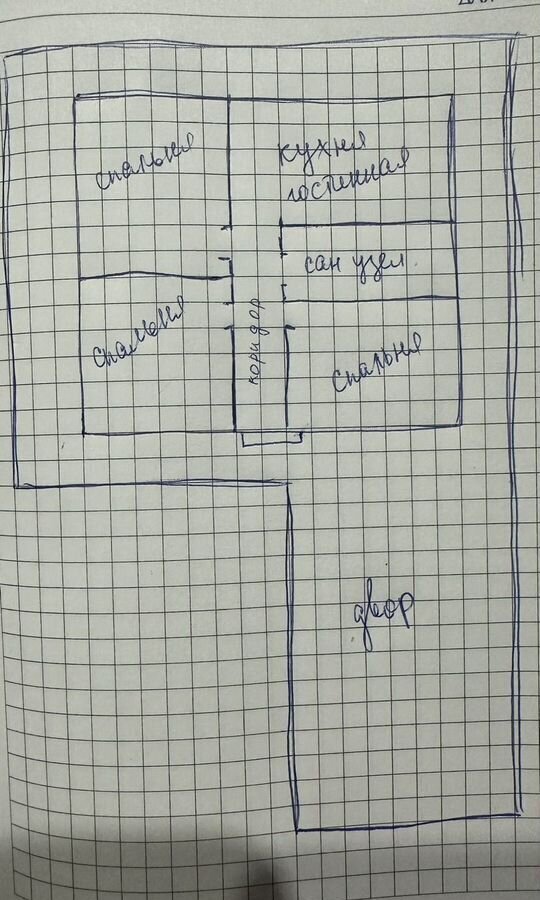 спальня
кухня
гостинная
сан узел.
спальня
коридор
спальня
двор